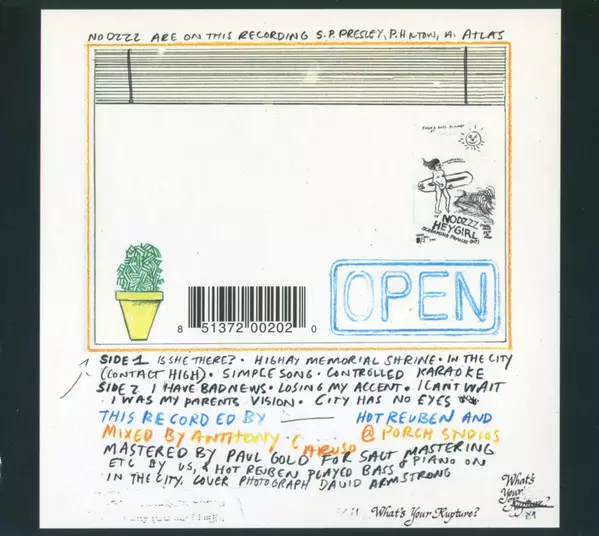 NODZZZ ARE ON THIS RECORDING S.P. PRESLEY, P. HINTON, A. ATLAS
NODZZZ
HEYGIRL
OPEN
8 51372 00202 0
SIDE 1 IS SHE THERE? · HIGHAY MEMORIAL SHRINE · IN THE CITY
(CONTACT HIGH) · SIMPLE SONG · CONTROLLED KARAOKE
SIDE 2 I HAVE BAD NEWS · LOSING MY ACCENT · I CAN'T WAIT
I WAS MY PARENTS VISION · CITY HAS NO EYES
THIS RECORDED BY HOT REUBEN AND
MIXED BY ANTHONY CARUSO @ PORCH STUDIOS
MASTERED BY PAUL GOLD FOR SALT MASTERING
ETC BY US, & HOT REUBEN PLAYED BASS & PIANO ON
IN THE CITY. COVER PHOTOGRAPH DAVID ARMSTRONG
What's Your Rupture?
What's
Your
Rupture?